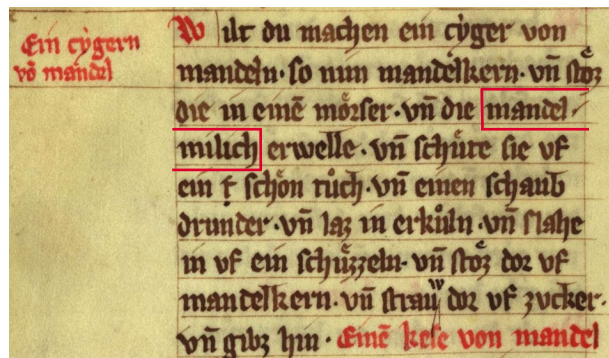 Ein cẏgern
võ mandel
Wilt du machen ein cẏger von
mandeln· so nim mandelkern· vñ stoͤz
die in einē moͤrser· vñ die mandel·
milich erwelle· vñ schuͤte sie vf
ein schoͤn tuͦch· vñ einen schaub
drunder· vñ laz in erkuͤln· vñ slahe
in vf ein schuͤzzeln· vñ stoͤz dor vf
mandelkern· vñ strauw dor vf zvcker·
vñ gibz hin· Einē kese von mandel